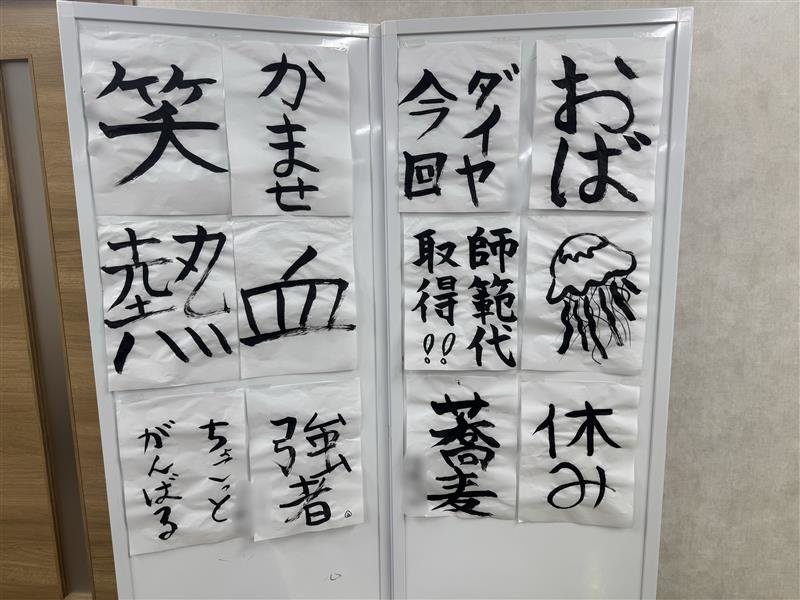 おば
ダイヤ
今回
師範代
取得!!
休み
蕎麦
かませ
笑
血
熱
強者。
ちょこっと
がんばる